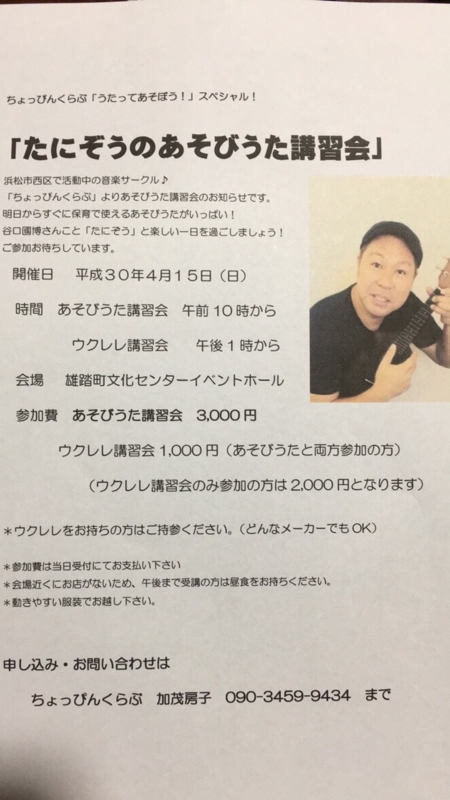 ちょっぴんくらぶ「うたってあそぼう！」スペシャル！
「たにぞうのあそびうた講習会」
浜松市西区で活動中の音楽サークル♪
「ちょっぴんくらぶ」よりあそびうた講習会のお知らせです。
明日からすぐに保育で使えるあそびうたがいっぱい！
谷口國博さんこと「たにぞう」と楽しい一日を過ごしましょう！
ご参加お待ちしています。
開催日　平成３０年４月１５日（日）
時間　あそびうた講習会　午前１０時から
ウクレレ講習会　午後１時から
会場　雄踏町文化センターイベントホール
参加費　あそびうた講習会　3,000円
ウクレレ講習会 1,000円（あそびうたと両方参加の方）
（ウクレレ講習会のみ参加の方は 2,000円となります）
＊ウクレレをお持ちの方はご持参ください。（どんなメーカーでもOK）
＊参加費は当日受付にてお支払い下さい
＊会場近くにお店がないため、午後まで受講の方は昼食をお持ちください。
＊動きやすい服装でお越し下さい。
申し込み・お問い合わせは
ちょっぴんくらぶ　加茂房子　090-3459-9434　まで